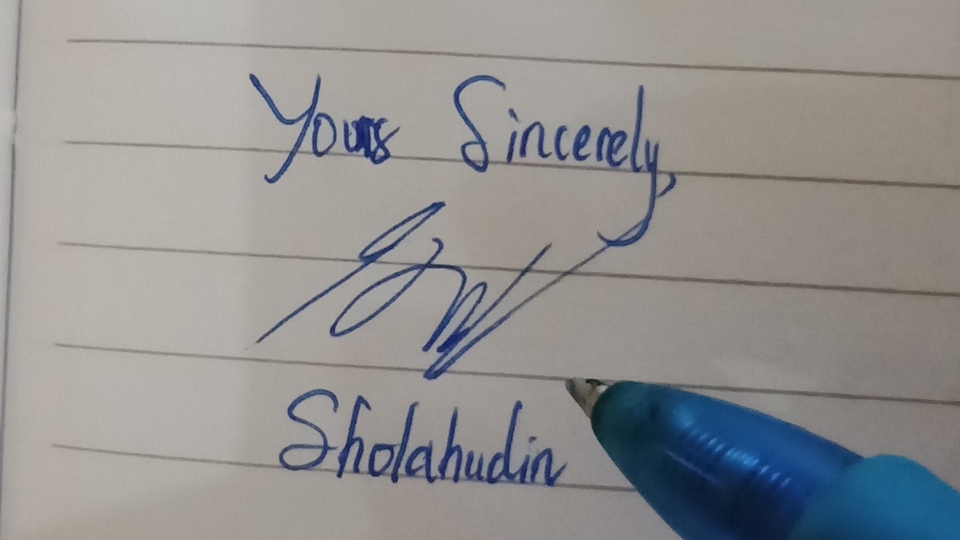 Yours Sincerely,
Sholahudin